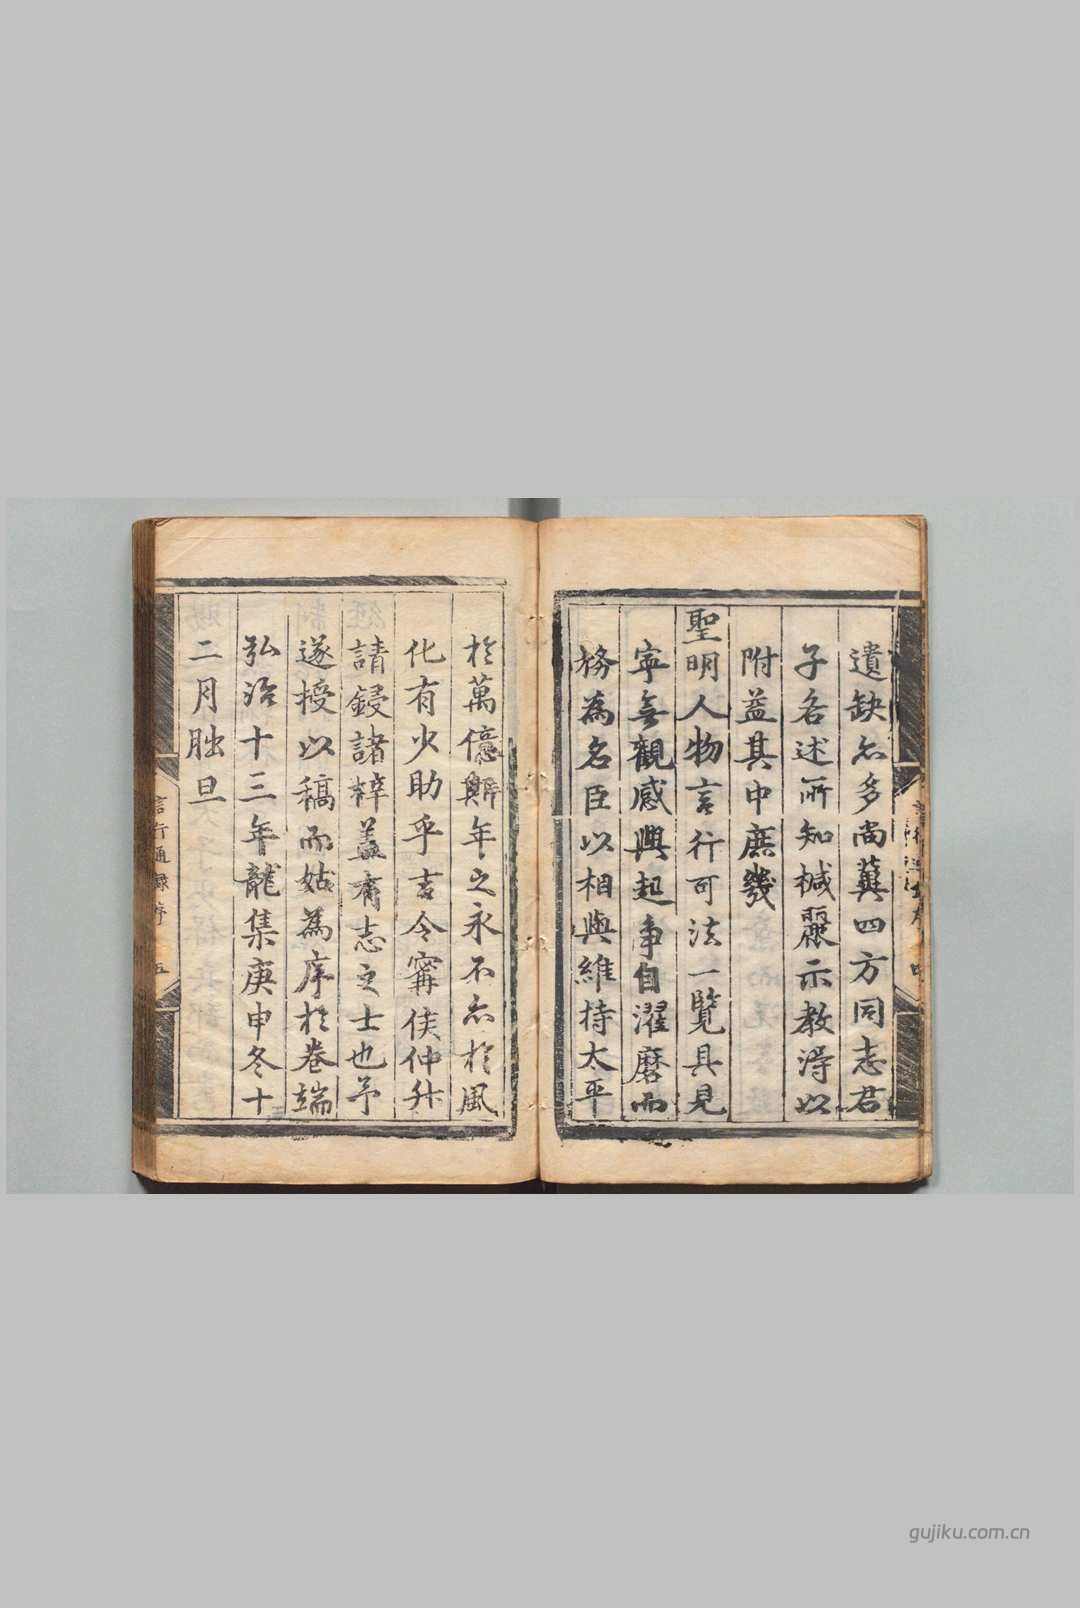 遺缺亦多尚冀四方同志君
子各述所知槭聚示教淂以
附益其中庶幾
聖明人物言行可法一覽具見
寧無觀感興起爭自濯磨而
務為名臣以相與維持太平
於萬億斯年之永不亦於風
化有少助乎吉令寗侯仲升
請鋟諸梓盖有志之士也予
遂授以稿而姑為序於卷端
弘治十三年龍集庚申冬十
二月朏旦
言行通録序 五
gujiku.com.cn